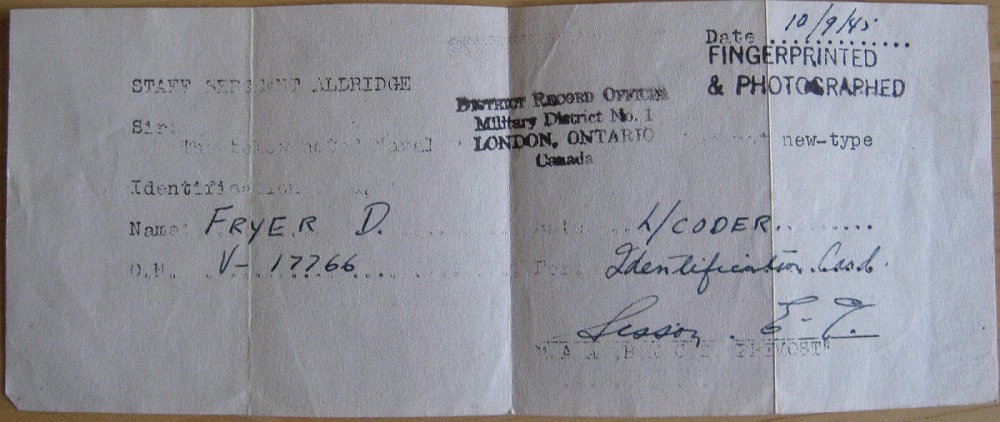 Date 10/9/45
FINGERPRINTED
& PHOTOGRAPHED
STAFF SERGEANT ALDRIDGE
DISTRICT RECORD OFFICER
Military District No. 1
LONDON, ONTARIO
Canada
Sir:
The below noted Naval new-type
Identification
Name: FRYER D. L/CODER
O.N. V-17766 For: Identification Card.
Sisson E-
"PROVOST"